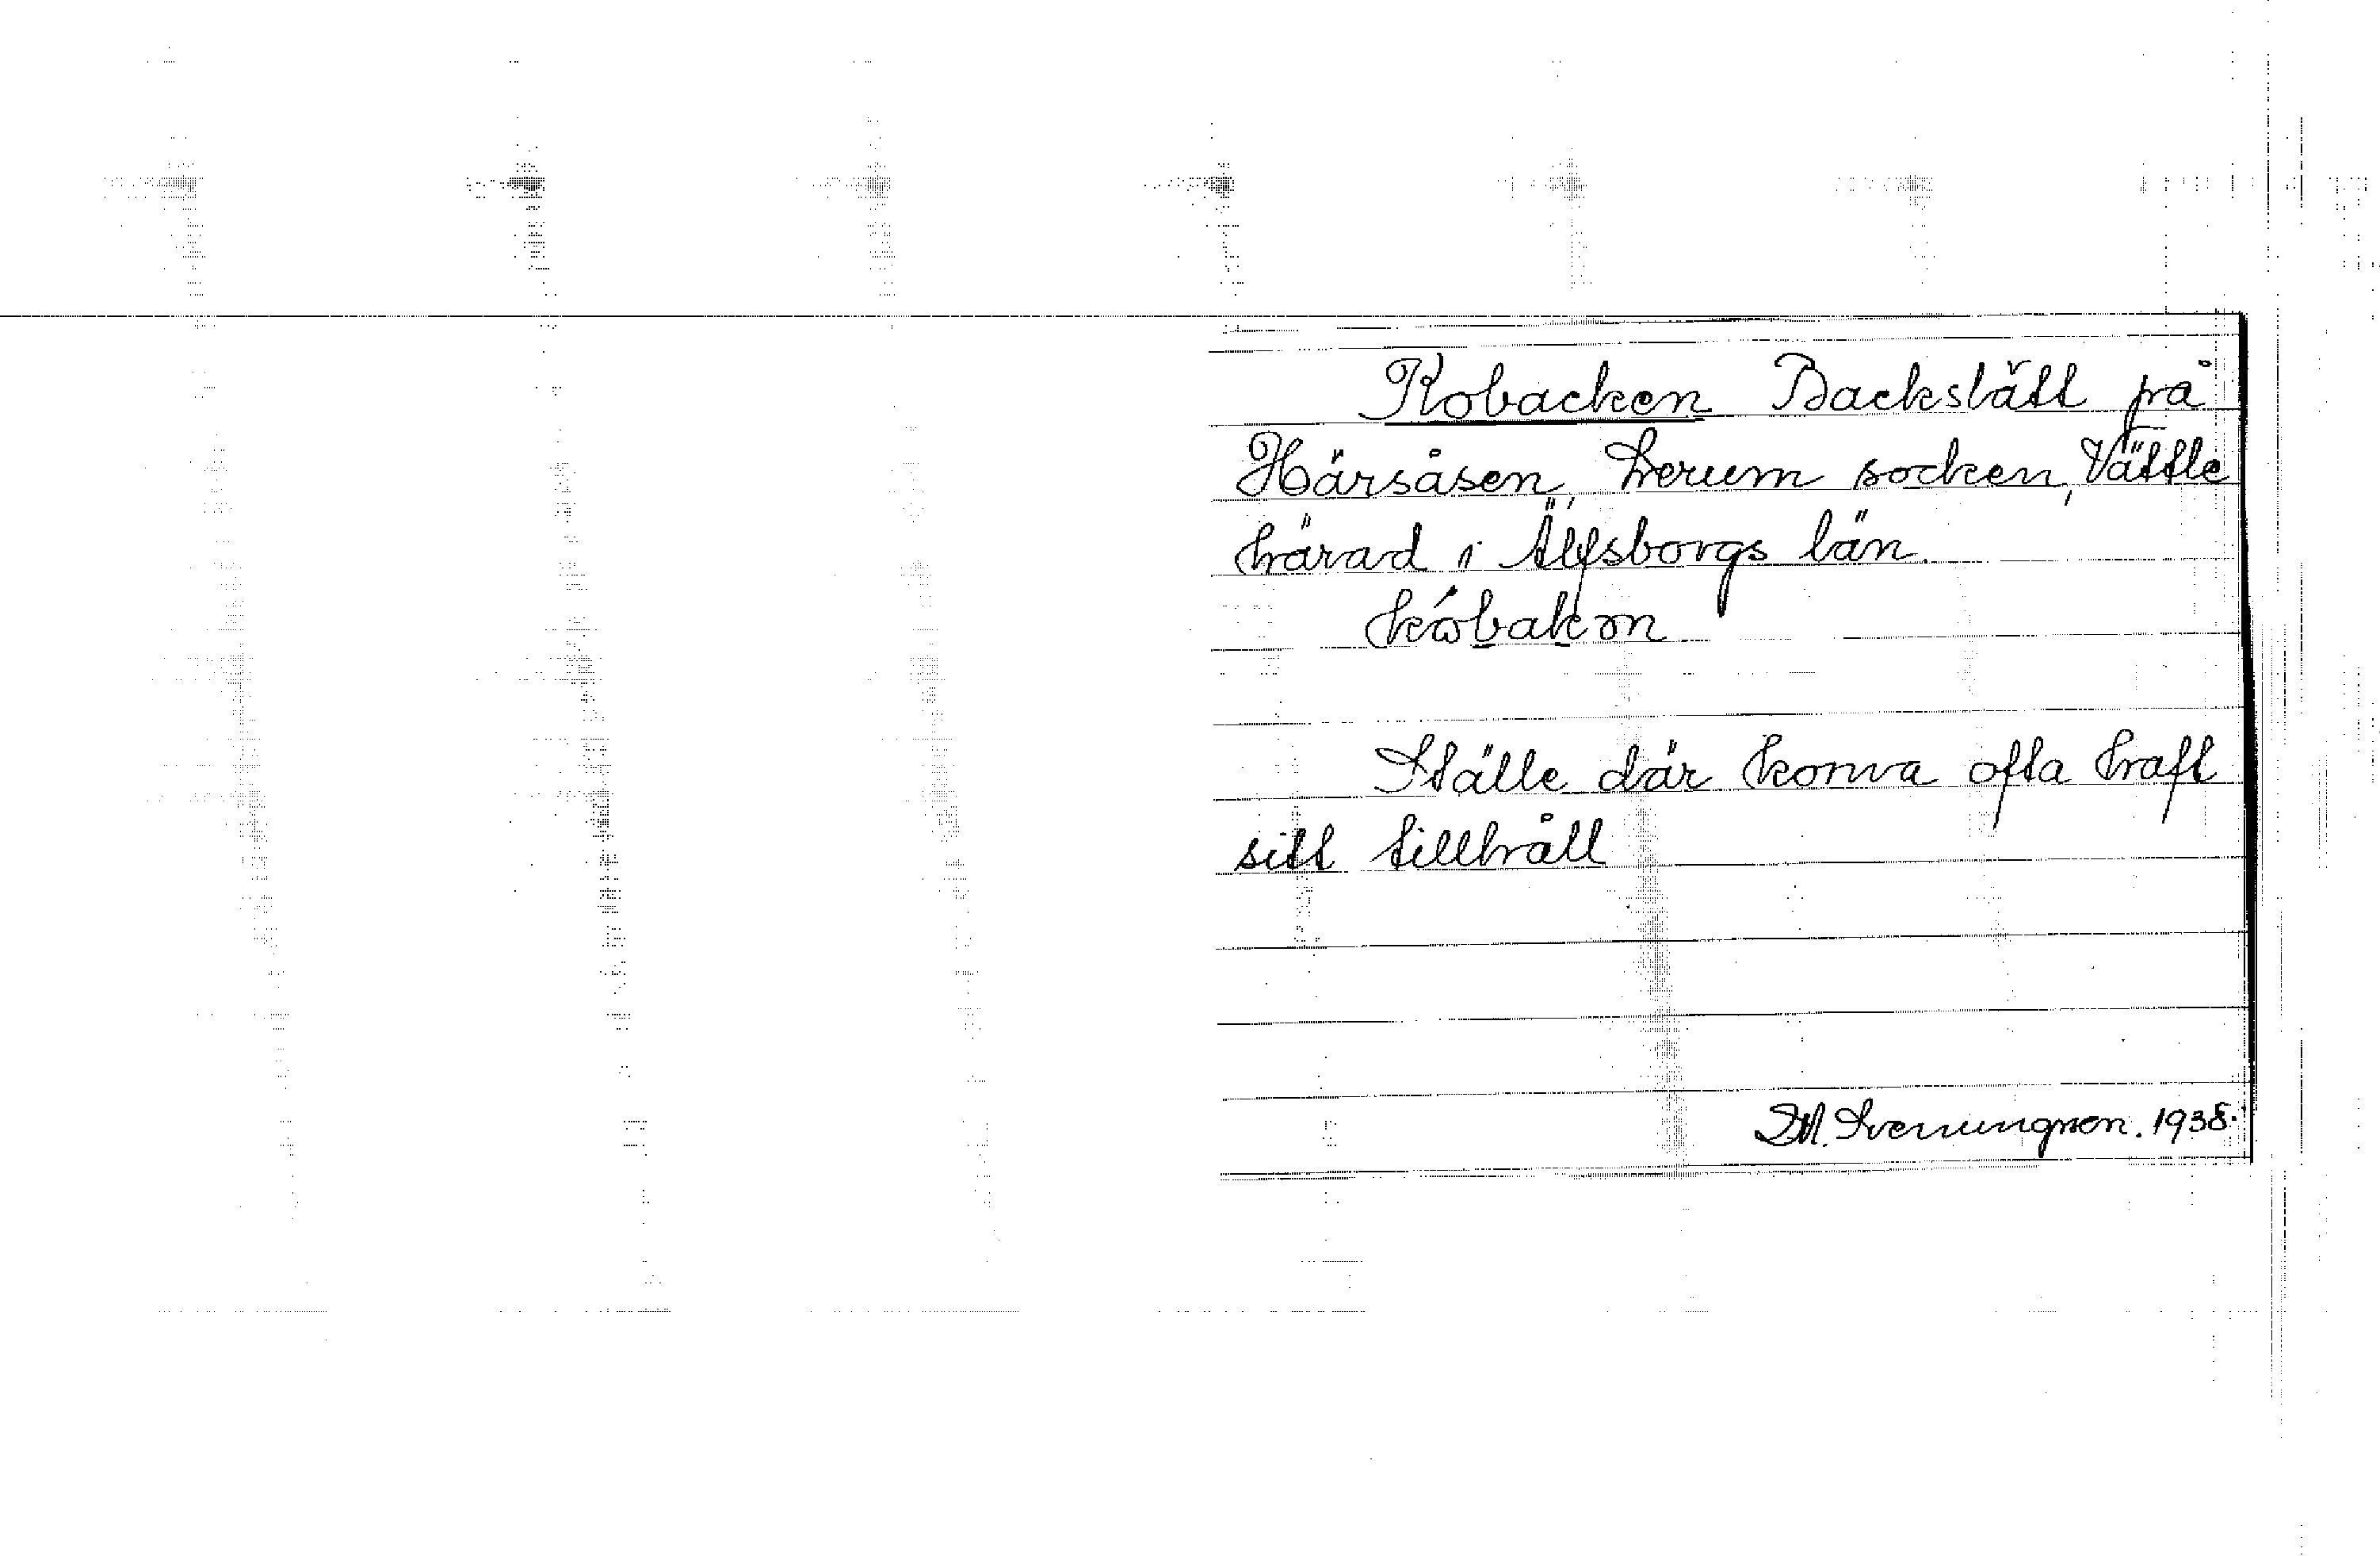 Kobacken Backslätt på
Härsåsen, Lerum socken, Vättle
härad i Älfsborgs län.
Ställe där korna ofta haft
sitt tillhåll
M. Svenungson. 1938.